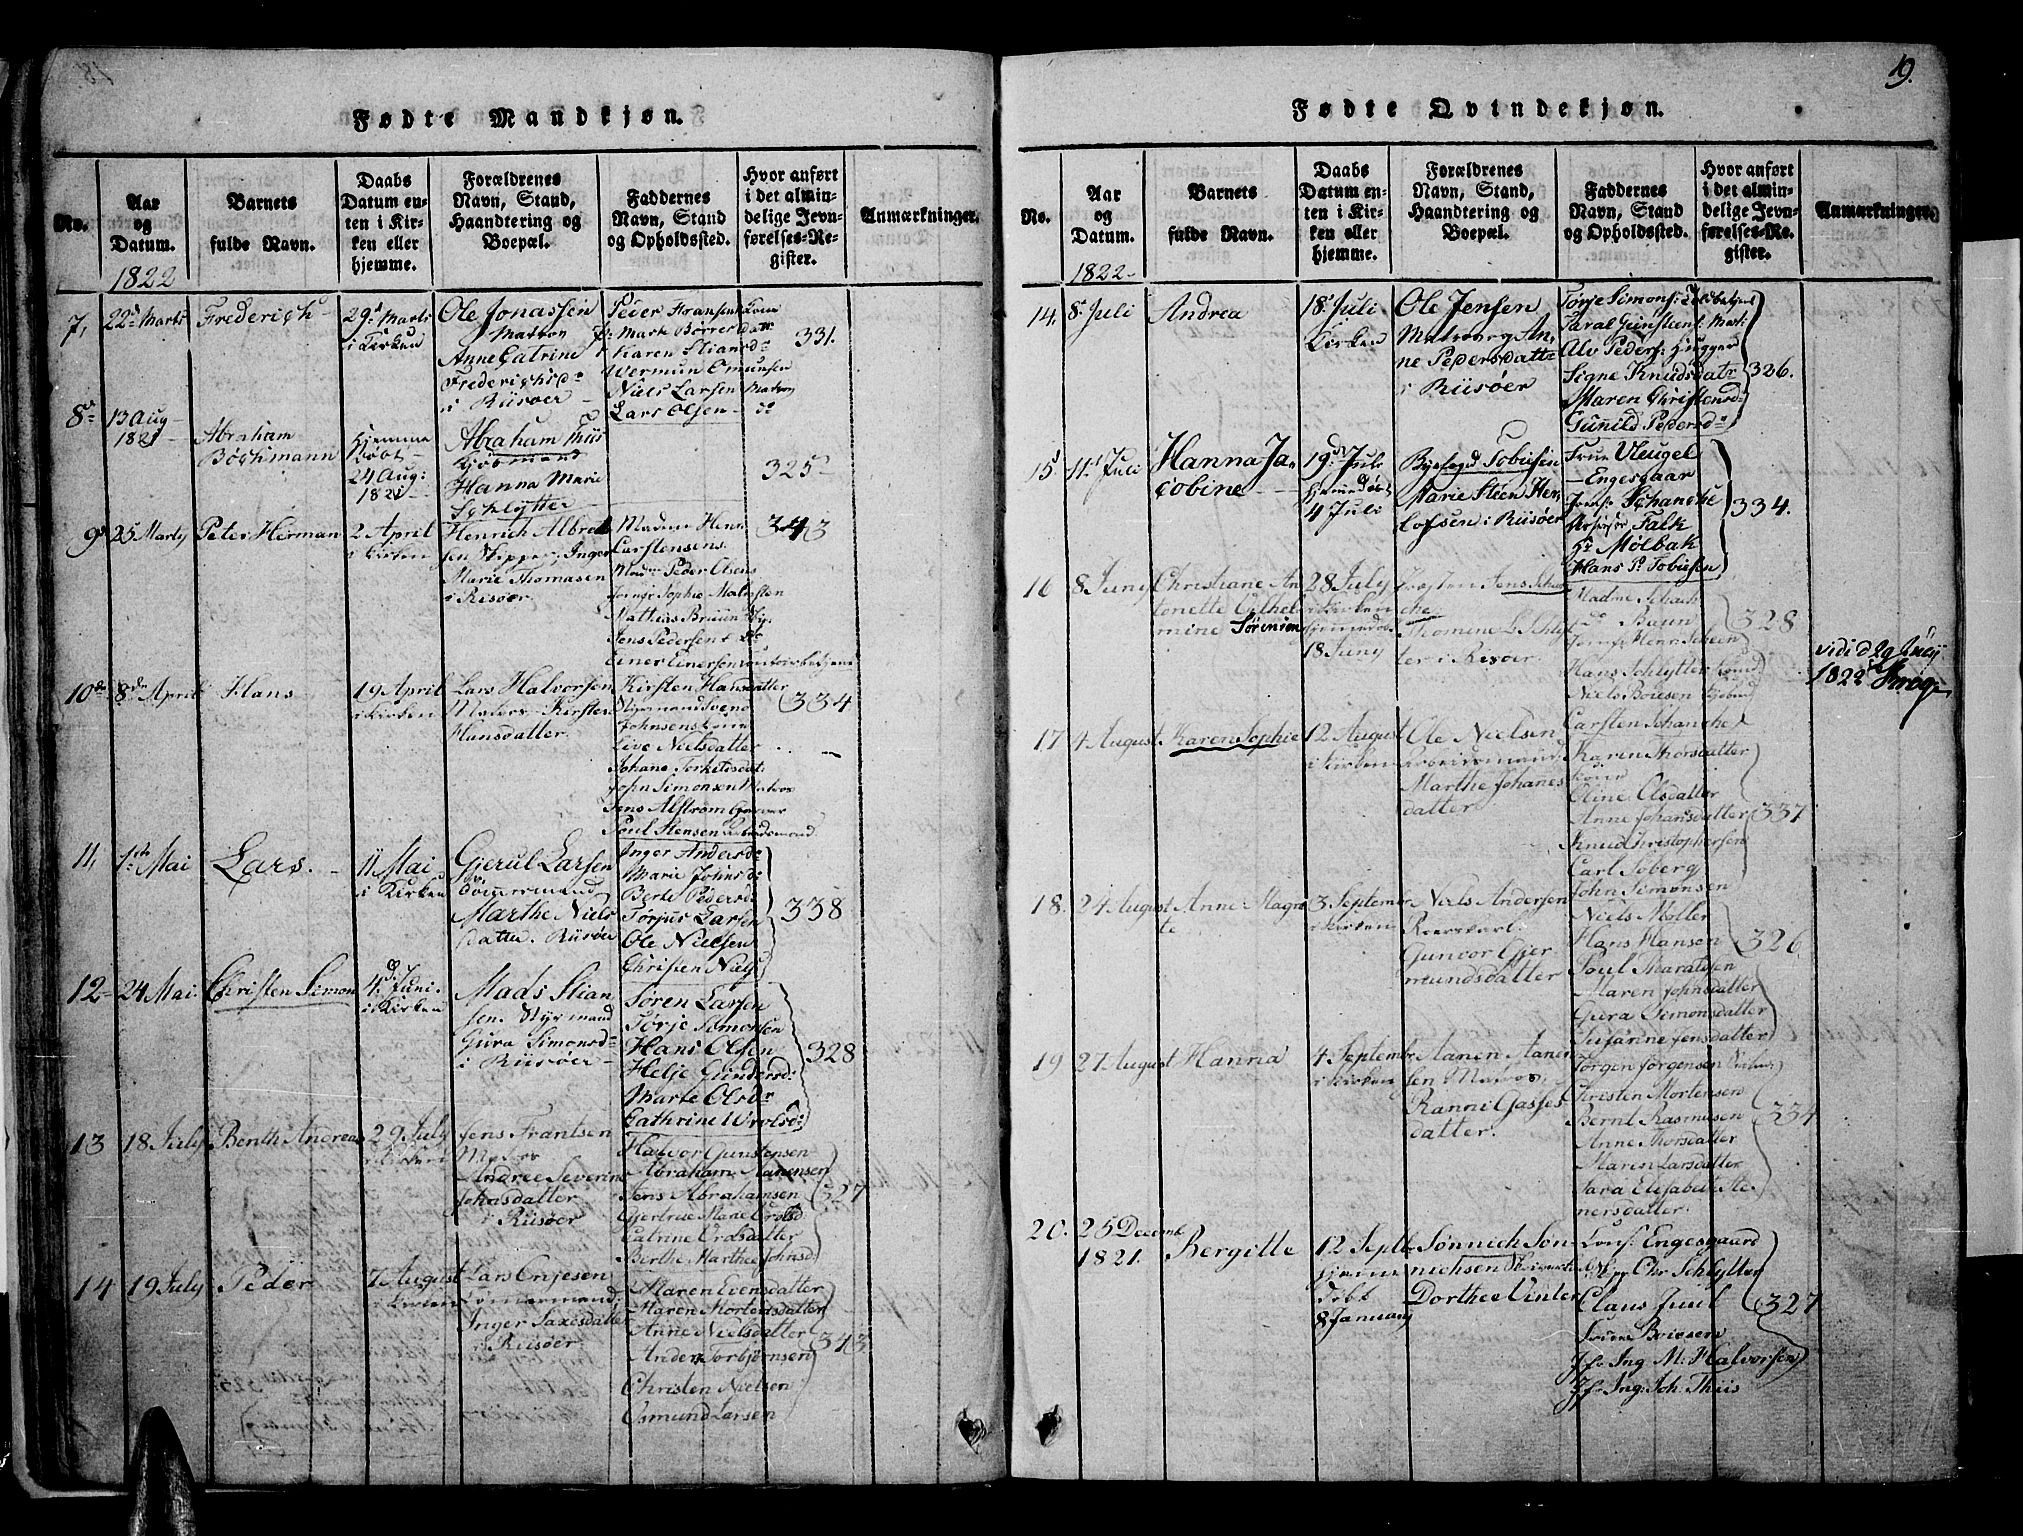 Fødte Mandkjøn.
No.
Aar og Datum.
Barnets fulde Navn.
Daabs Datum enten i Kirken eller hjemme.
Forældrenes Navn, Stand, Haandtering og Boepæl.
Faddernes Navn, Stand og Opholdssted.
Hvor anført i det almindelige Jevnførelses-Register.
Anmærkninger.
1822
7,
22d Marts
Frederich
29d Marts
i Kirken
Ole Jonassen
Matros
Anne Catrine
Frederichsd
i Riisøer
Peder Fransens Kone
Mart Børresdatr
Karen Stiansd
Wermun Omunsen
Niels Larsen Matros
Lars Olsen
331.
8
13 Aug
1821
Abraham
Bochmann
Hjemme
døbt
24 Aug:
1821
Abraham Tiis
Kjøbmand
Hanna Marie
Schlytter
325
9
25 Marty
Peter Herman
2 April
i Kirken
Henrich Albret
sen Skipper, Inger
Marie Thomasen
i Risøer
Madme Hens
Carstensens
Madme Peder Olsens
Jomfr Sophie Malmsten
Mathias Bruun
Jens Pedersen
Einer Einersen
343
10de
8de April
Hans
19 April
i Kirken
Lars Halvorsen
Matros Kirsten
Hansdatter
Kirsten Hansdatter
Styrmand Svend
Johnsens Kone
Live Nielsdatter
Johane Terkelsdat:
John Simonsen Matros
Jens Alstrøm Garver
Poul Stensen Arbeidsmand
334
11,
1ste Mai
Lars.
11 Mai
i Kirken
Gjerul Larsen
Tømmermand
Marthe Niels
datter. Riisøer
Inger Andersd
Marie Johnsd:
Berte Pedersd
Torjus Larsen
Ole Nielsen
Christen Niels
338
12
24 Mai.
Christen Simon
4d. Juni.
i Kirken
Mads Stian
sen. Styrmand
Gura Simonsd
i Riisøer
Søren Larsen
Tørje Simonsen
Hans Olsen
Helje Gundersd:
Marte Olsdr
Cathrine Wrolsd:
328
13
18 July
Benth Andreas
29 July
i Kirken
Jens Frantsen
Matros
Andree Severine
Johnsdatter
i Riisøer
Halvor Gunstensen
Abraham Aanensen
Jens Abrahamsen
Gjertrue Marie Vrolsd
Catrine Vrolsdatter
Berthe Marthe Johnsd:
327
14
19 July
Peder
7 August
i Kirken
Lars Onjesen
Tømmermand
Inger Saxesdatter
i Riisøer
Maren Evensdatter
Maren Mortensdatter
Anne Nielsdatter
Anders Torbjørnsen
Christen Nielsen
Osmund Larsen
343
19.
Fødte Qvindekjøn.
No.
Aar og Datum.
Barnets fulde Navn.
Daabs Datum enten i Kirken eller hjemme.
Forældrenes Navn, Stand, Haandtering og Boepæl.
Faddernes Navn, Stand og Opholdssted.
Hvor anført i det almindelige Jevnførelses-Register.
Anmærkninger.
1822
14.
8d Juli
Andrea
18d Juli
Kirken
Ole Jensen
Matros og An
ne Pedersdatte
i Riisøer
Tørje Simons: Toldbetjent
Taral Gunstens: Mat:
Alv Peders: Hugger
Signe Knudsdatr
Maren Christensd
Gunild Pedersd
326.
15
11d Juli
Hanna Ja
cobine
19d Juli
Hjemmedøbt
4 Juli
Byefogd Tobiesen
Marie Steen Her
lofsen i Riisøer
Frue Vleugel
Engesgaar
Jomfr Schanche
Assesør Falk
Hr Mølbak
Hans P. Tobiesen
334.
16
8 Juny
Christiane An
tonette Vilhel
mine Sørensen
28 July
i Kirken
hjemmedøbt
18 Juny
Provsten Jens Schan
che
Thomine L. Schlyt
ter i Risøer
Madme Schach
Do Buun
Jomfr Henr. Scheen
Hans Schlytter
Niels Boiesen
Carsten Schanche
328
vidi d 29 July
1822
Krog
17
4 August.
Karen Sophie
12 August
i Kirken
Ole Nielsen
Arbeidsmand
Marthe Johanes
datter
Karen Thorsdatter
Kone
Oline Olsdatter
Anne Johansdatter
Knud Christophersen
Carl Soberg
John Simonsen
337
18.
24 August
Anne Magre
te
3 Septembr
i Kirken
Niels Andersen
Roerskarl.
Gunvor Gjer
mundsdatter
Niels Møller
Hans Hansen
Poul Tharalsen
Maren Johnsdatter
Gura Simonsdatter
Susanne Jensdatter
326
19
27 August
Hanna
4 Septembr
i Kirken
Aanen Aanen
sen Matros,
Ranni Gasses
datter.
Jørgen Jørgensen
Christen Mortensen
Bernt Rasmusen
Anne Thorsdatter
Maren Larsdatter
Sara Elisabet Ste
nersdatter
334
20.
25 Decemb
1821.
Bergitte
12 Septbr
Hjemme
Døbt
8 January
Sønnich Søn
nichsen
Dorthea Vinter
Cons: Engesgaard
Chr Schlytter
Claus Juul
Frue Boiesen
Jfr Ing M: Halvorsen
Jfr Ing: Joh: Thiis
327